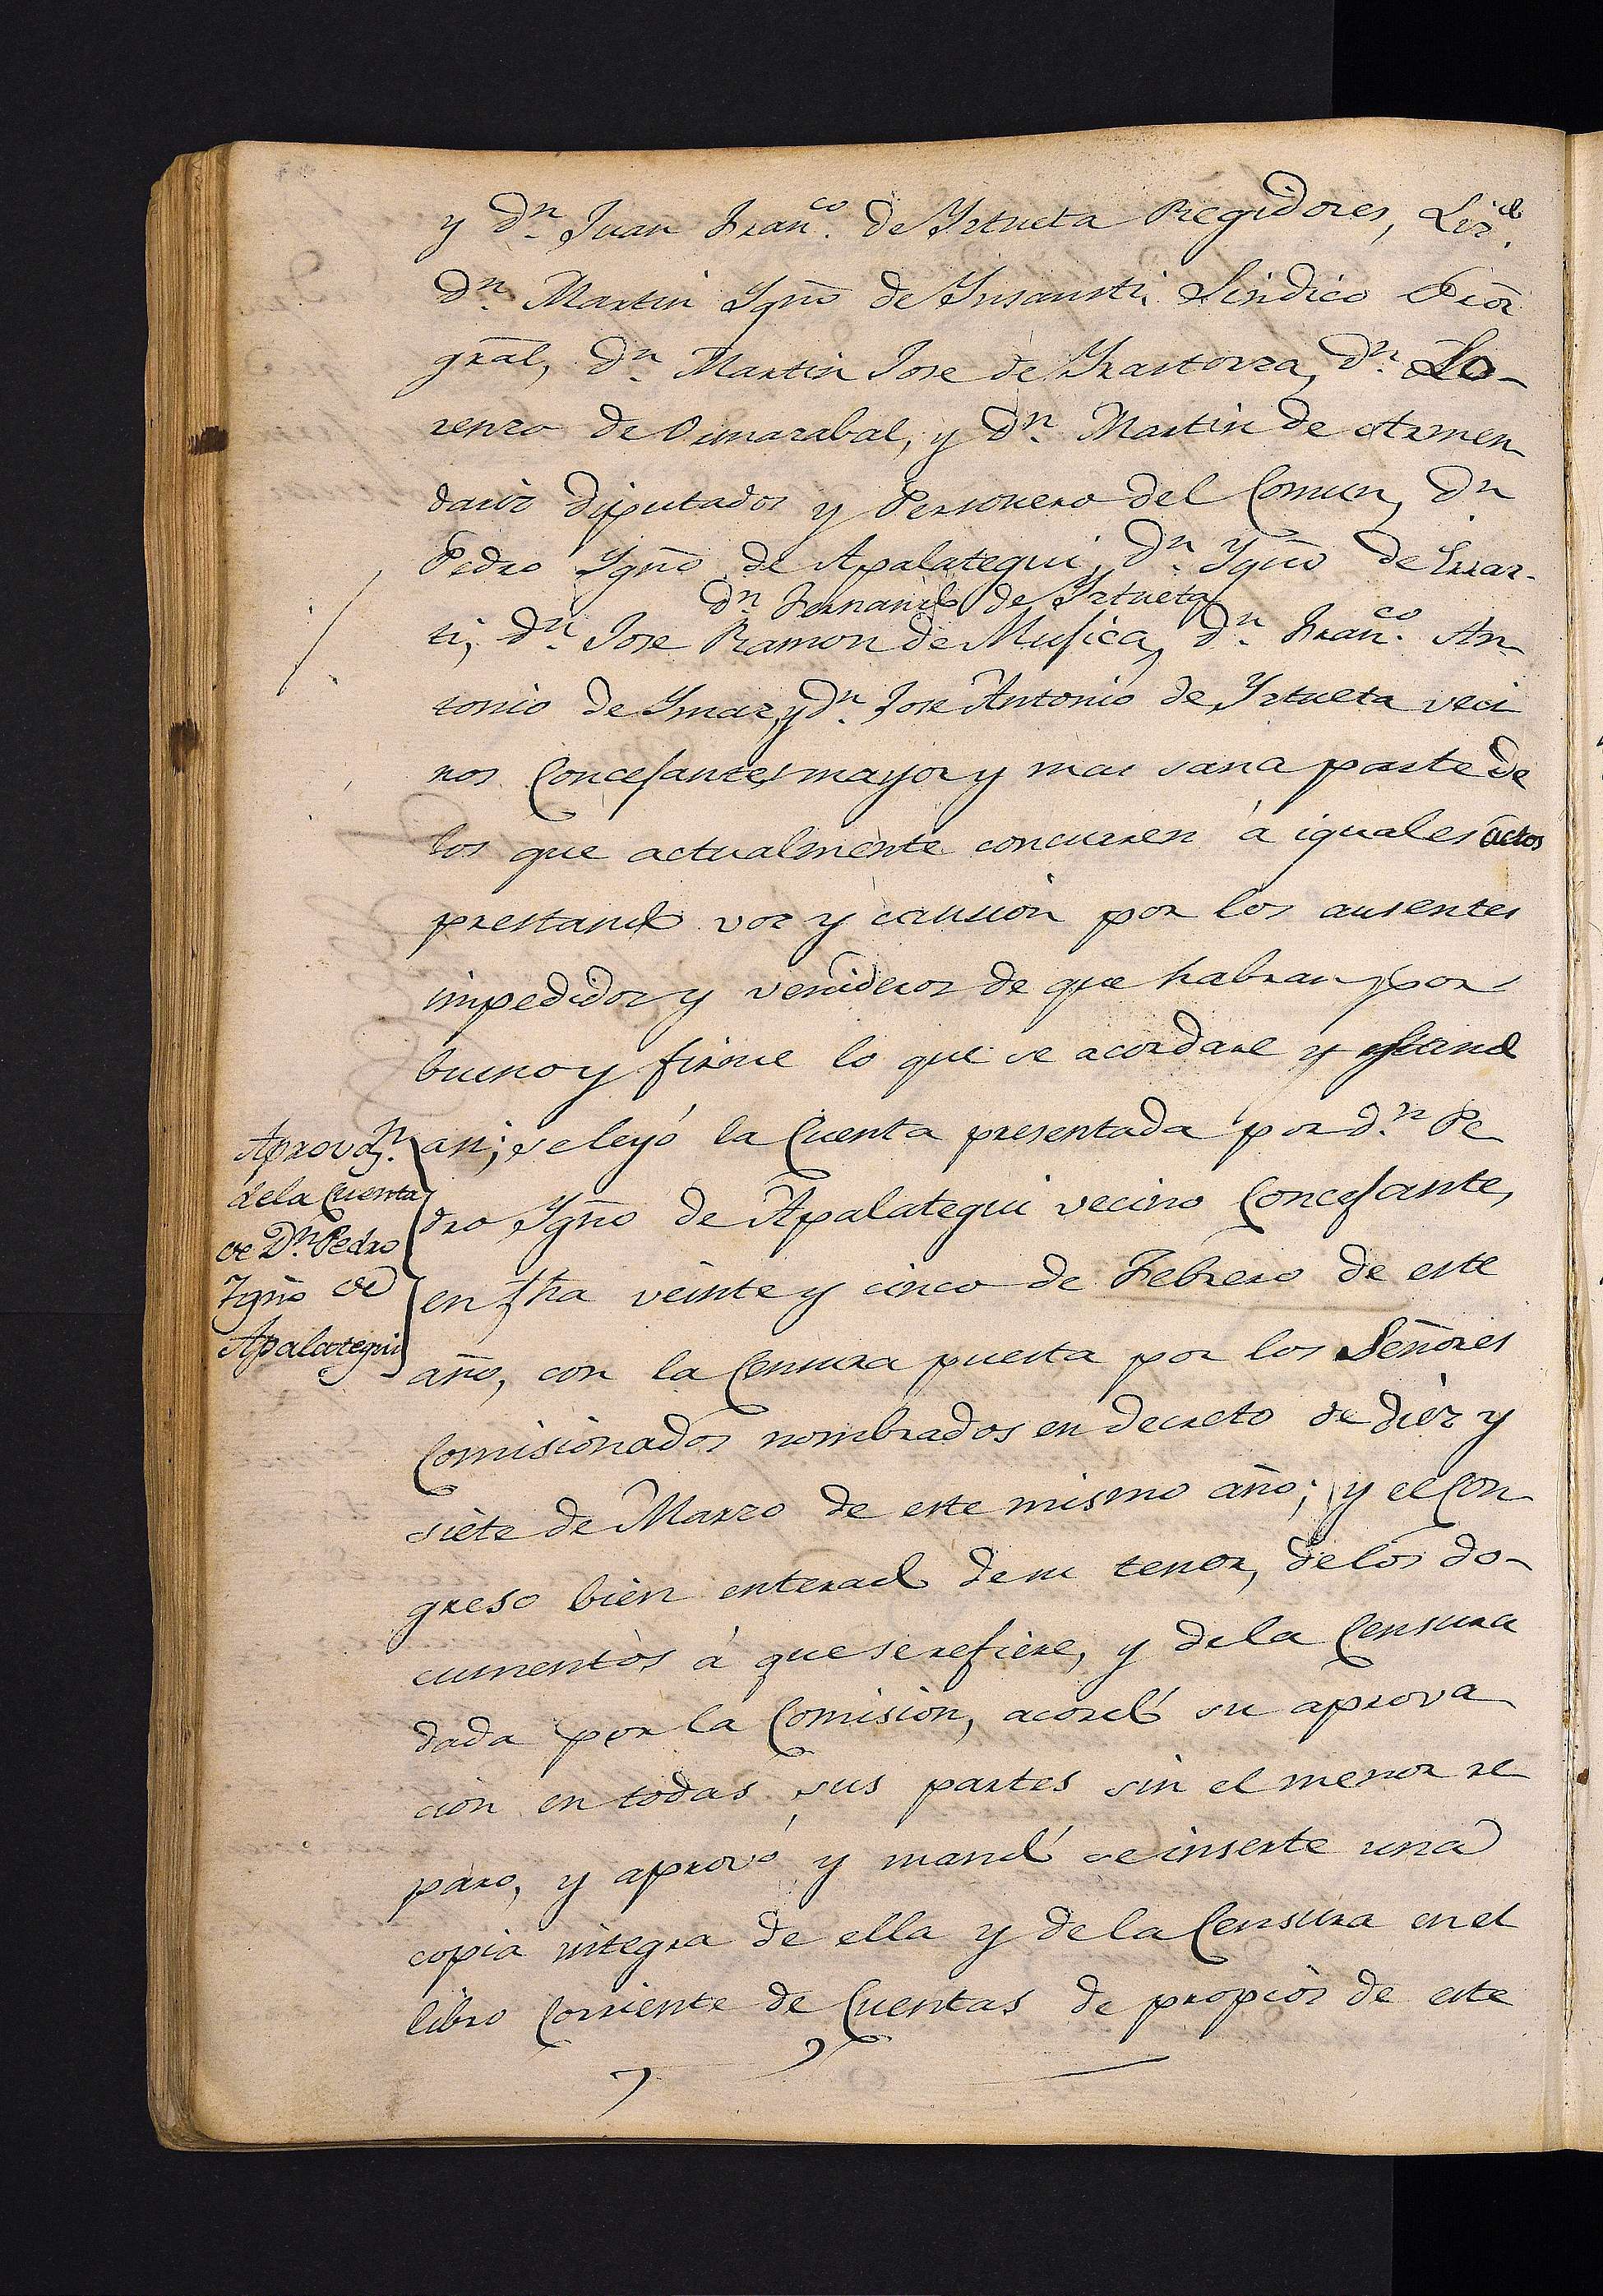 y Dn. Juan Franco. de Yztueta Regidores, Licdo.
Dn. Martin Ygño de Ynsausti Sindico Prõr
grãl, Dn. Martin Jose de Yrastorza, Dn. Lo-
renzo de Dunarabal, y Dn. Martin de Armen
dariz diputados y Personero del Comun, Dn
Pedro Ygño de Apalategui, Dn. Ygño de Errar-
Dn Fernando de Yztueta
ti, Dn. Jose Ramon de Mugica, Dn. Franco. An
tonio de Ymaz, y Dn. Jose Antonio de Yztueta veci
nos Concejantes mayor y mas sana parte de
los que actualmente concurren á iguales actos
prestando voz y caución por los ausentes
impedidos y venideros de que habran por
bueno y firme lo que se acordare y estando
Aprovon.
asi; se leyó la Cuenta presentada por Dn. Pe
dela Cuenta
dro Ygño de Apalategui vecino Concejante,
de Dn. Pedro
Ygño de
en fha veinte y cinco de Febrero de este
Apalategui
año, con la Censura puesta por los Señores
Comisionados nombrados en decreto de diez y
siete de Marzo de este mismo año; y el Con
greso bien enterado de su tenor, delos do-
cumentos á que se refiere, y dela Censura
dada por la Comision, acordó su aprova
cion en todas sus partes sin el menor re
paro, y aprovó y mandó se inserte una
copia integra de ella y dela Censura en el
libro Corriente de Cuentas de propios de este